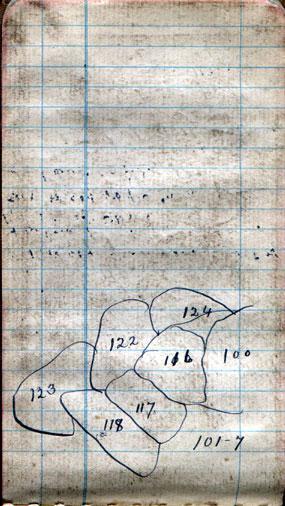 124
122
116
100
123
117
118
101-7